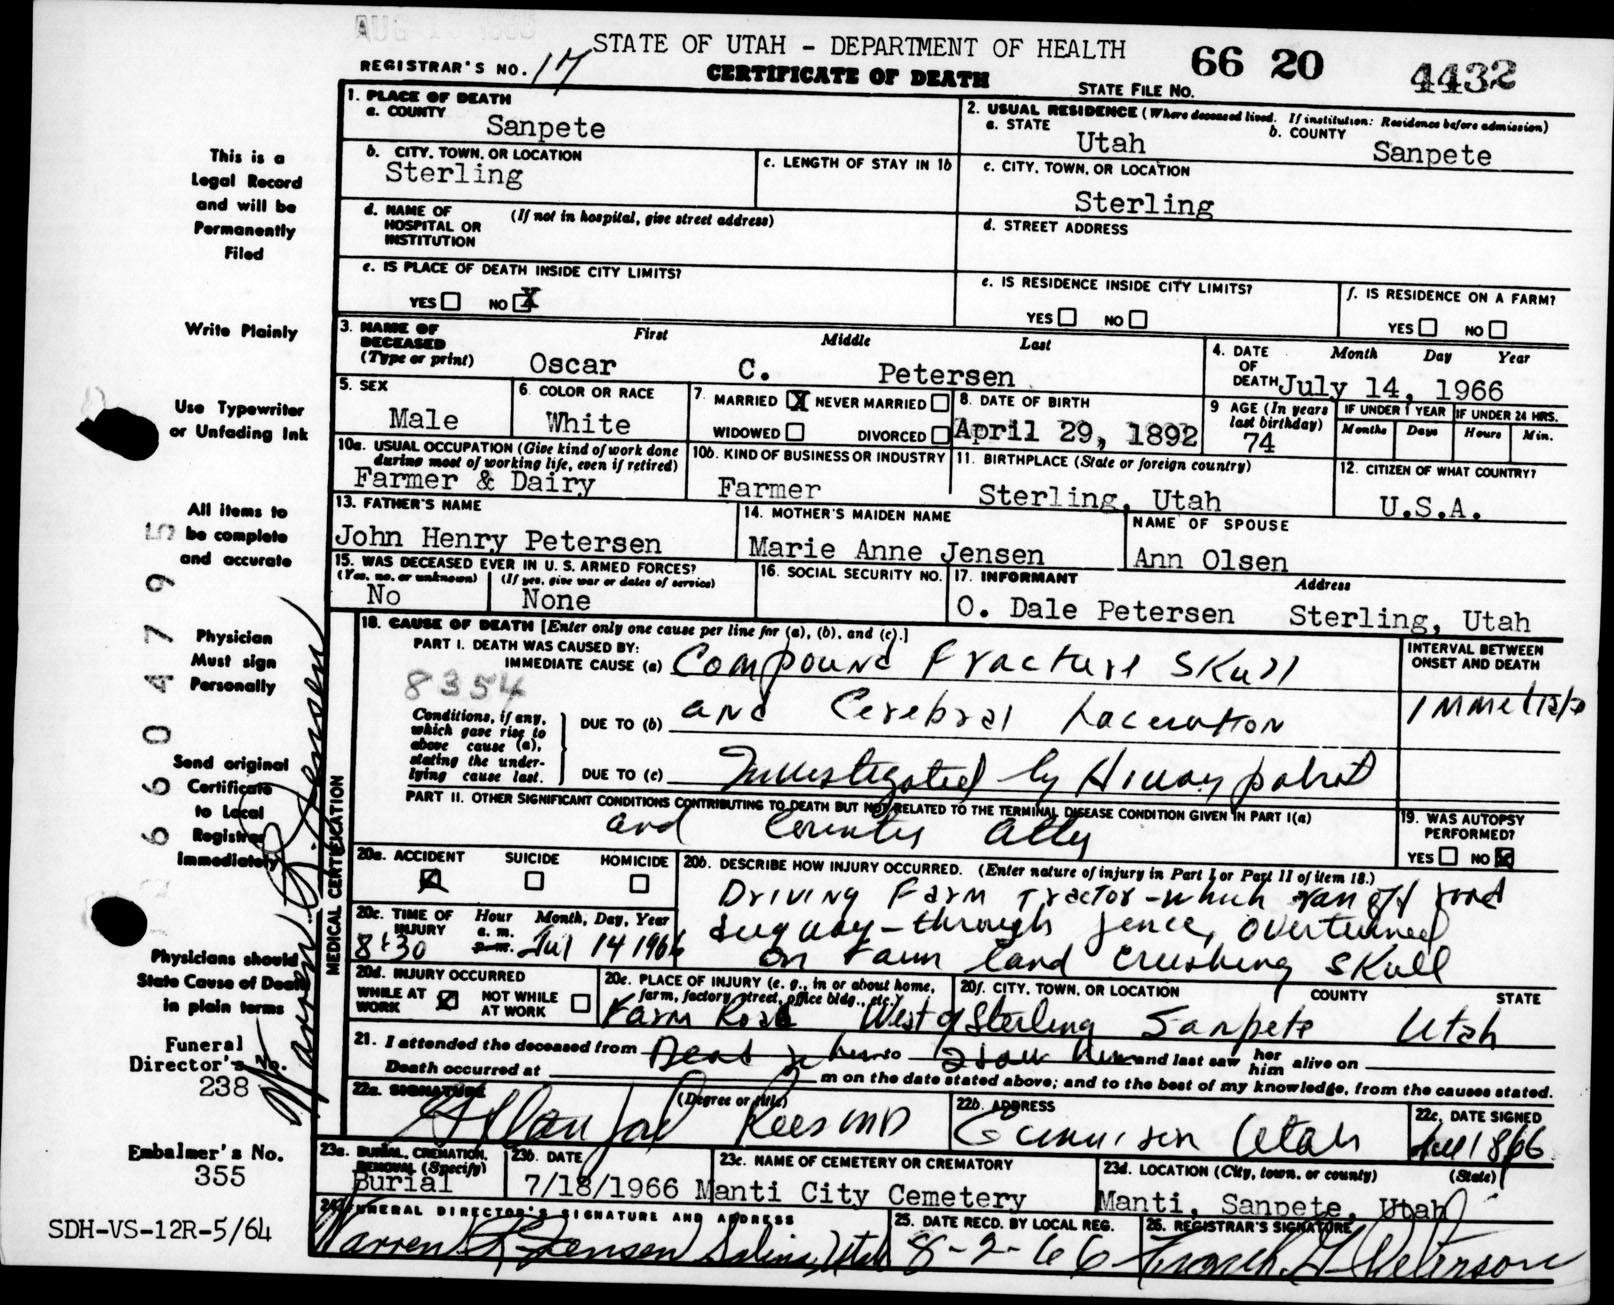 STATE OF UTAH - DEPARTMENT OF HEALTH
CERTIFICATE OF DEATH
REGISTRAR'S NO. 17
STATE FILE NO. 66 20 4432
This is a
Legal Record
and will be
Permanently
Filed
Write Plainly
Use Typewriter
or Unfading Ink
All items to
be complete
and accurate
Physician
Must sign
Personally
Send original
Certificate
to Local
Registrar
Immediately
Physicians should
State Cause of Death
in plain terms
Funeral
Director's No.
238
Embalmer's No.
355
SDH-VS-12R-5/64
6604795
1. PLACE OF DEATH
a. COUNTY
Sanpete
2. USUAL RESIDENCE (Where deceased lived. If institution: Residence before admission)
a. STATE
Utah
b. COUNTY
Sanpete
b. CITY, TOWN, OR LOCATION
Sterling
c. LENGTH OF STAY IN 1b
c. CITY, TOWN, OR LOCATION
Sterling
d. NAME OF HOSPITAL OR INSTITUTION
(If not in hospital, give street address)
d. STREET ADDRESS
e. IS PLACE OF DEATH INSIDE CITY LIMITS?
YES NO X
e. IS RESIDENCE INSIDE CITY LIMITS?
YES NO
f. IS RESIDENCE ON A FARM?
YES NO
3. NAME OF DECEASED (Type or print)
First Middle Last
Oscar C. Petersen
4. DATE OF DEATH
Month Day Year
July 14, 1966
5. SEX
Male
6. COLOR OR RACE
White
7. MARRIED X NEVER MARRIED
WIDOWED DIVORCED
8. DATE OF BIRTH
April 29, 1892
9 AGE (In years last birthday)
74
IF UNDER 1 YEAR
Months Days
IF UNDER 24 HRS.
Hours Min.
10a. USUAL OCCUPATION (Give kind of work done during most of working life, even if retired)
Farmer & Dairy
10b. KIND OF BUSINESS OR INDUSTRY
Farmer
11. BIRTHPLACE (State or foreign country)
Sterling, Utah
12. CITIZEN OF WHAT COUNTRY?
U.S.A.
13. FATHER'S NAME
John Henry Petersen
14. MOTHER'S MAIDEN NAME
Marie Anne Jensen
NAME OF SPOUSE
Ann Olsen
15. WAS DECEASED EVER IN U. S. ARMED FORCES?
(Yes, no, or unknown) (If yes, give war or dates of service)
No None
16. SOCIAL SECURITY NO.
17. INFORMANT Address
O. Dale Petersen Sterling, Utah
MEDICAL CERTIFICATION
18. CAUSE OF DEATH [Enter only one cause per line for (a), (b), and (c).]
PART I. DEATH WAS CAUSED BY:
IMMEDIATE CAUSE (a) Compound Fracture Skull
8354
INTERVAL BETWEEN ONSET AND DEATH
Immediate
Conditions, if any, which gave rise to above cause (a), stating the underlying cause last.
DUE TO (b) and Cerebral Laceration
DUE TO (c) Investigated by Hiway patrol
PART II. OTHER SIGNIFICANT CONDITIONS CONTRIBUTING TO DEATH BUT NOT RELATED TO THE TERMINAL DISEASE CONDITION GIVEN IN PART I(a)
and County Atty
19. WAS AUTOPSY PERFORMED?
YES NO X
20a. ACCIDENT SUICIDE HOMICIDE
20b. DESCRIBE HOW INJURY OCCURRED. (Enter nature of injury in Part I or Part II of item 18.)
Driving Farm Tractor - which ran off road
dugway - through fence, overturned
on Farm land crushing skull
20c. TIME OF INJURY
Hour a. m. p. m. Month, Day, Year
8:30 Jul 14 1966
20d. INJURY OCCURRED
WHILE AT WORK NOT WHILE AT WORK
20e. PLACE OF INJURY (e. g., in or about home, farm, factory, street, office bldg., etc.)
Farm Road
20f. CITY, TOWN, OR LOCATION COUNTY STATE
West of Sterling Sanpete Utah
21. I attended the deceased from Dead when to I saw him and last saw her him alive on
Death occurred at m on the date stated above; and to the best of my knowledge, from the causes stated.
22a. SIGNATURE (Degree or title)
Rees MD
22b. ADDRESS
Gunnison Utah
22c. DATE SIGNED
23a. BURIAL, CREMATION, REMOVAL (Specify)
Burial
23b. DATE
7/18/1966
23c. NAME OF CEMETERY OR CREMATORY
Manti City Cemetery
23d. LOCATION (City, town, or county) (State)
Manti, Sanpete, Utah
24. FUNERAL DIRECTOR'S SIGNATURE AND ADDRESS
Warren Jensen Salina, Utah
25. DATE RECD. BY LOCAL REG.
8-2-66
26. REGISTRAR'S SIGNATURE
Peterson